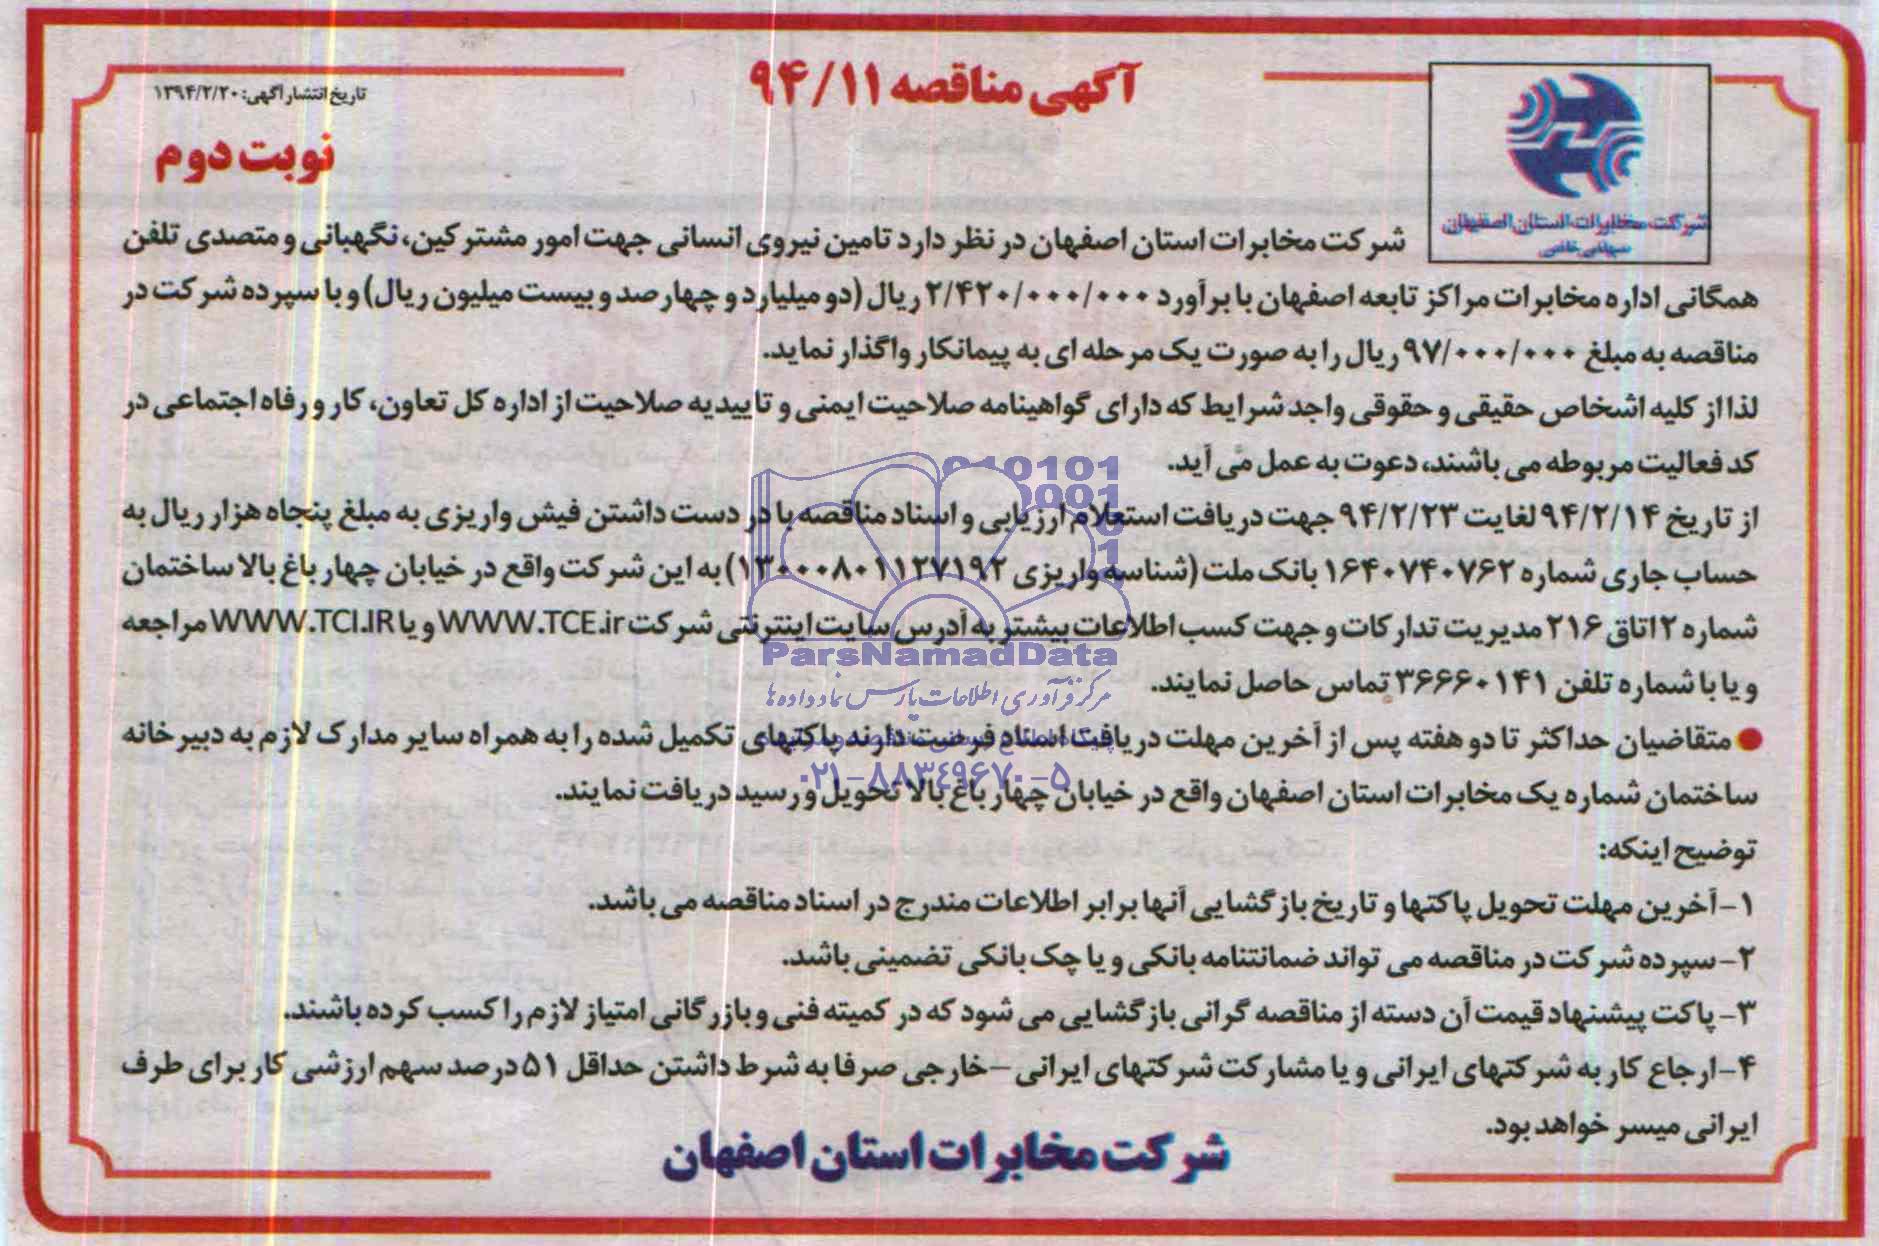 آگهی مناقصه ۹۴/۱۱
تاریخ انتشار آگهی: ۱۳۹۴/۲/۲۰
نوبت دوم
شرکت مخابرات استان اصفهان
سهامی خاص
شرکت مخابرات استان اصفهان در نظر دارد تامین نیروی انسانی جهت امور مشترکین، نگهبانی و متصدی تلفن
همگانی اداره مخابرات مراکز تابعه اصفهان با برآورد ۲/۴۲۰/۰۰۰/۰۰۰ ریال (دو میلیارد و چهارصد و بیست میلیون ریال) و با سپرده شرکت در
مناقصه به مبلغ ۹۷/۰۰۰/۰۰۰ ریال را به صورت یک مرحله ای به پیمانکار واگذار نماید.
لذا از کلیه اشخاص حقیقی و حقوقی واجد شرایط که دارای گواهینامه صلاحیت ایمنی و تاییدیه صلاحیت از اداره کل تعاون، کار و رفاه اجتماعی در
کد فعالیت مربوطه می باشند، دعوت به عمل می آید.
از تاریخ ۹۴/۲/۱۴ لغایت ۹۴/۲/۲۳ جهت دریافت استعلام ارزیابی و اسناد مناقصه با در دست داشتن فیش واریزی به مبلغ پنجاه هزار ریال به
حساب جاری شماره ۱۶۴۰۷۴۰۷۶۲ بانک ملت (شناسه واریزی ۱۳۰۰۰۸۰۱۱۲۷۱۹۲) به این شرکت واقع در خیابان چهار باغ بالا ساختمان
شماره ۲ اتاق ۲۱۶ مدیریت تدارکات و جهت کسب اطلاعات بیشتر به آدرس سایت اینترنتی شرکت WWW.TCE.ir و یا WWW.TCI.IR مراجعه
و یا با شماره تلفن ۳۶۶۶۰۱۴۱ تماس حاصل نمایند.
● متقاضیان حداکثر تا دو هفته پس از آخرین مهلت دریافت اسناد فرصت دارند پاکتهای تکمیل شده را به همراه سایر مدارک لازم به دبیرخانه
ساختمان شماره یک مخابرات استان اصفهان واقع در خیابان چهار باغ بالا تحویل و رسید دریافت نمایند.
توضیح اینکه:
۱- آخرین مهلت تحویل پاکتها و تاریخ بازگشایی آنها برابر اطلاعات مندرج در اسناد مناقصه می باشد.
۲- سپرده شرکت در مناقصه می تواند ضمانتنامه بانکی و یا چک بانکی تضمینی باشد.
۳- پاکت پیشنهاد قیمت آن دسته از مناقصه گرانی بازگشایی می شود که در کمیته فنی و بازرگانی امتیاز لازم را کسب کرده باشند.
۴- ارجاع کار به شرکتهای ایرانی و یا مشارکت شرکتهای ایرانی – خارجی صرفا به شرط داشتن حداقل ۵۱ درصد سهم ارزشی کار برای طرف
ایرانی میسر خواهد بود.
شرکت مخابرات استان اصفهان
ParsNamadData
مرکز فرآوری اطلاعات پارس نماد داده ها
۰۲۱-۸۸۳۴۹۶۷۰-۵